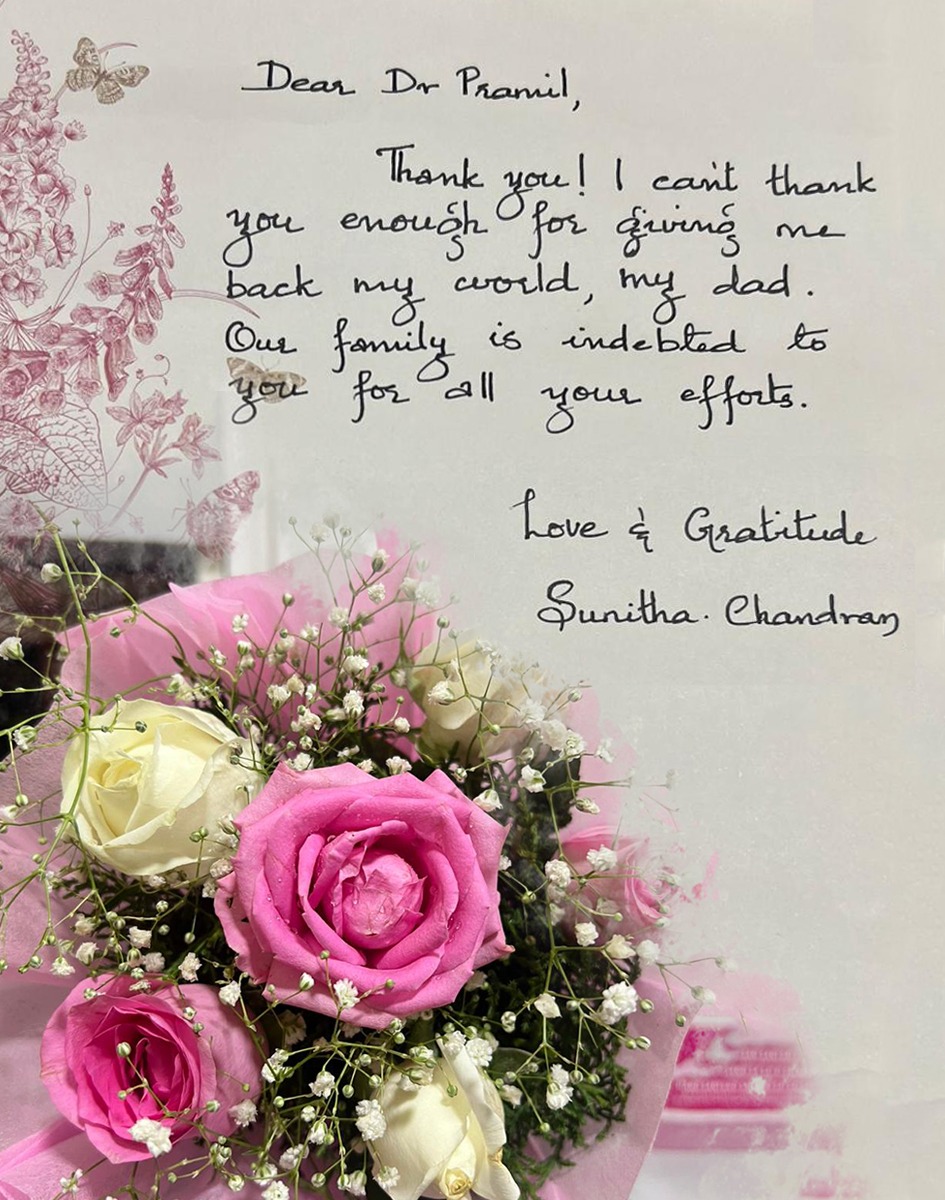 Dear Dr Pramil,
Thank you! I can't thank
you enough for giving me
back my world, my dad.
Our family is indebted to
you for all your efforts.
Love & Gratitude
Sunitha. Chandran